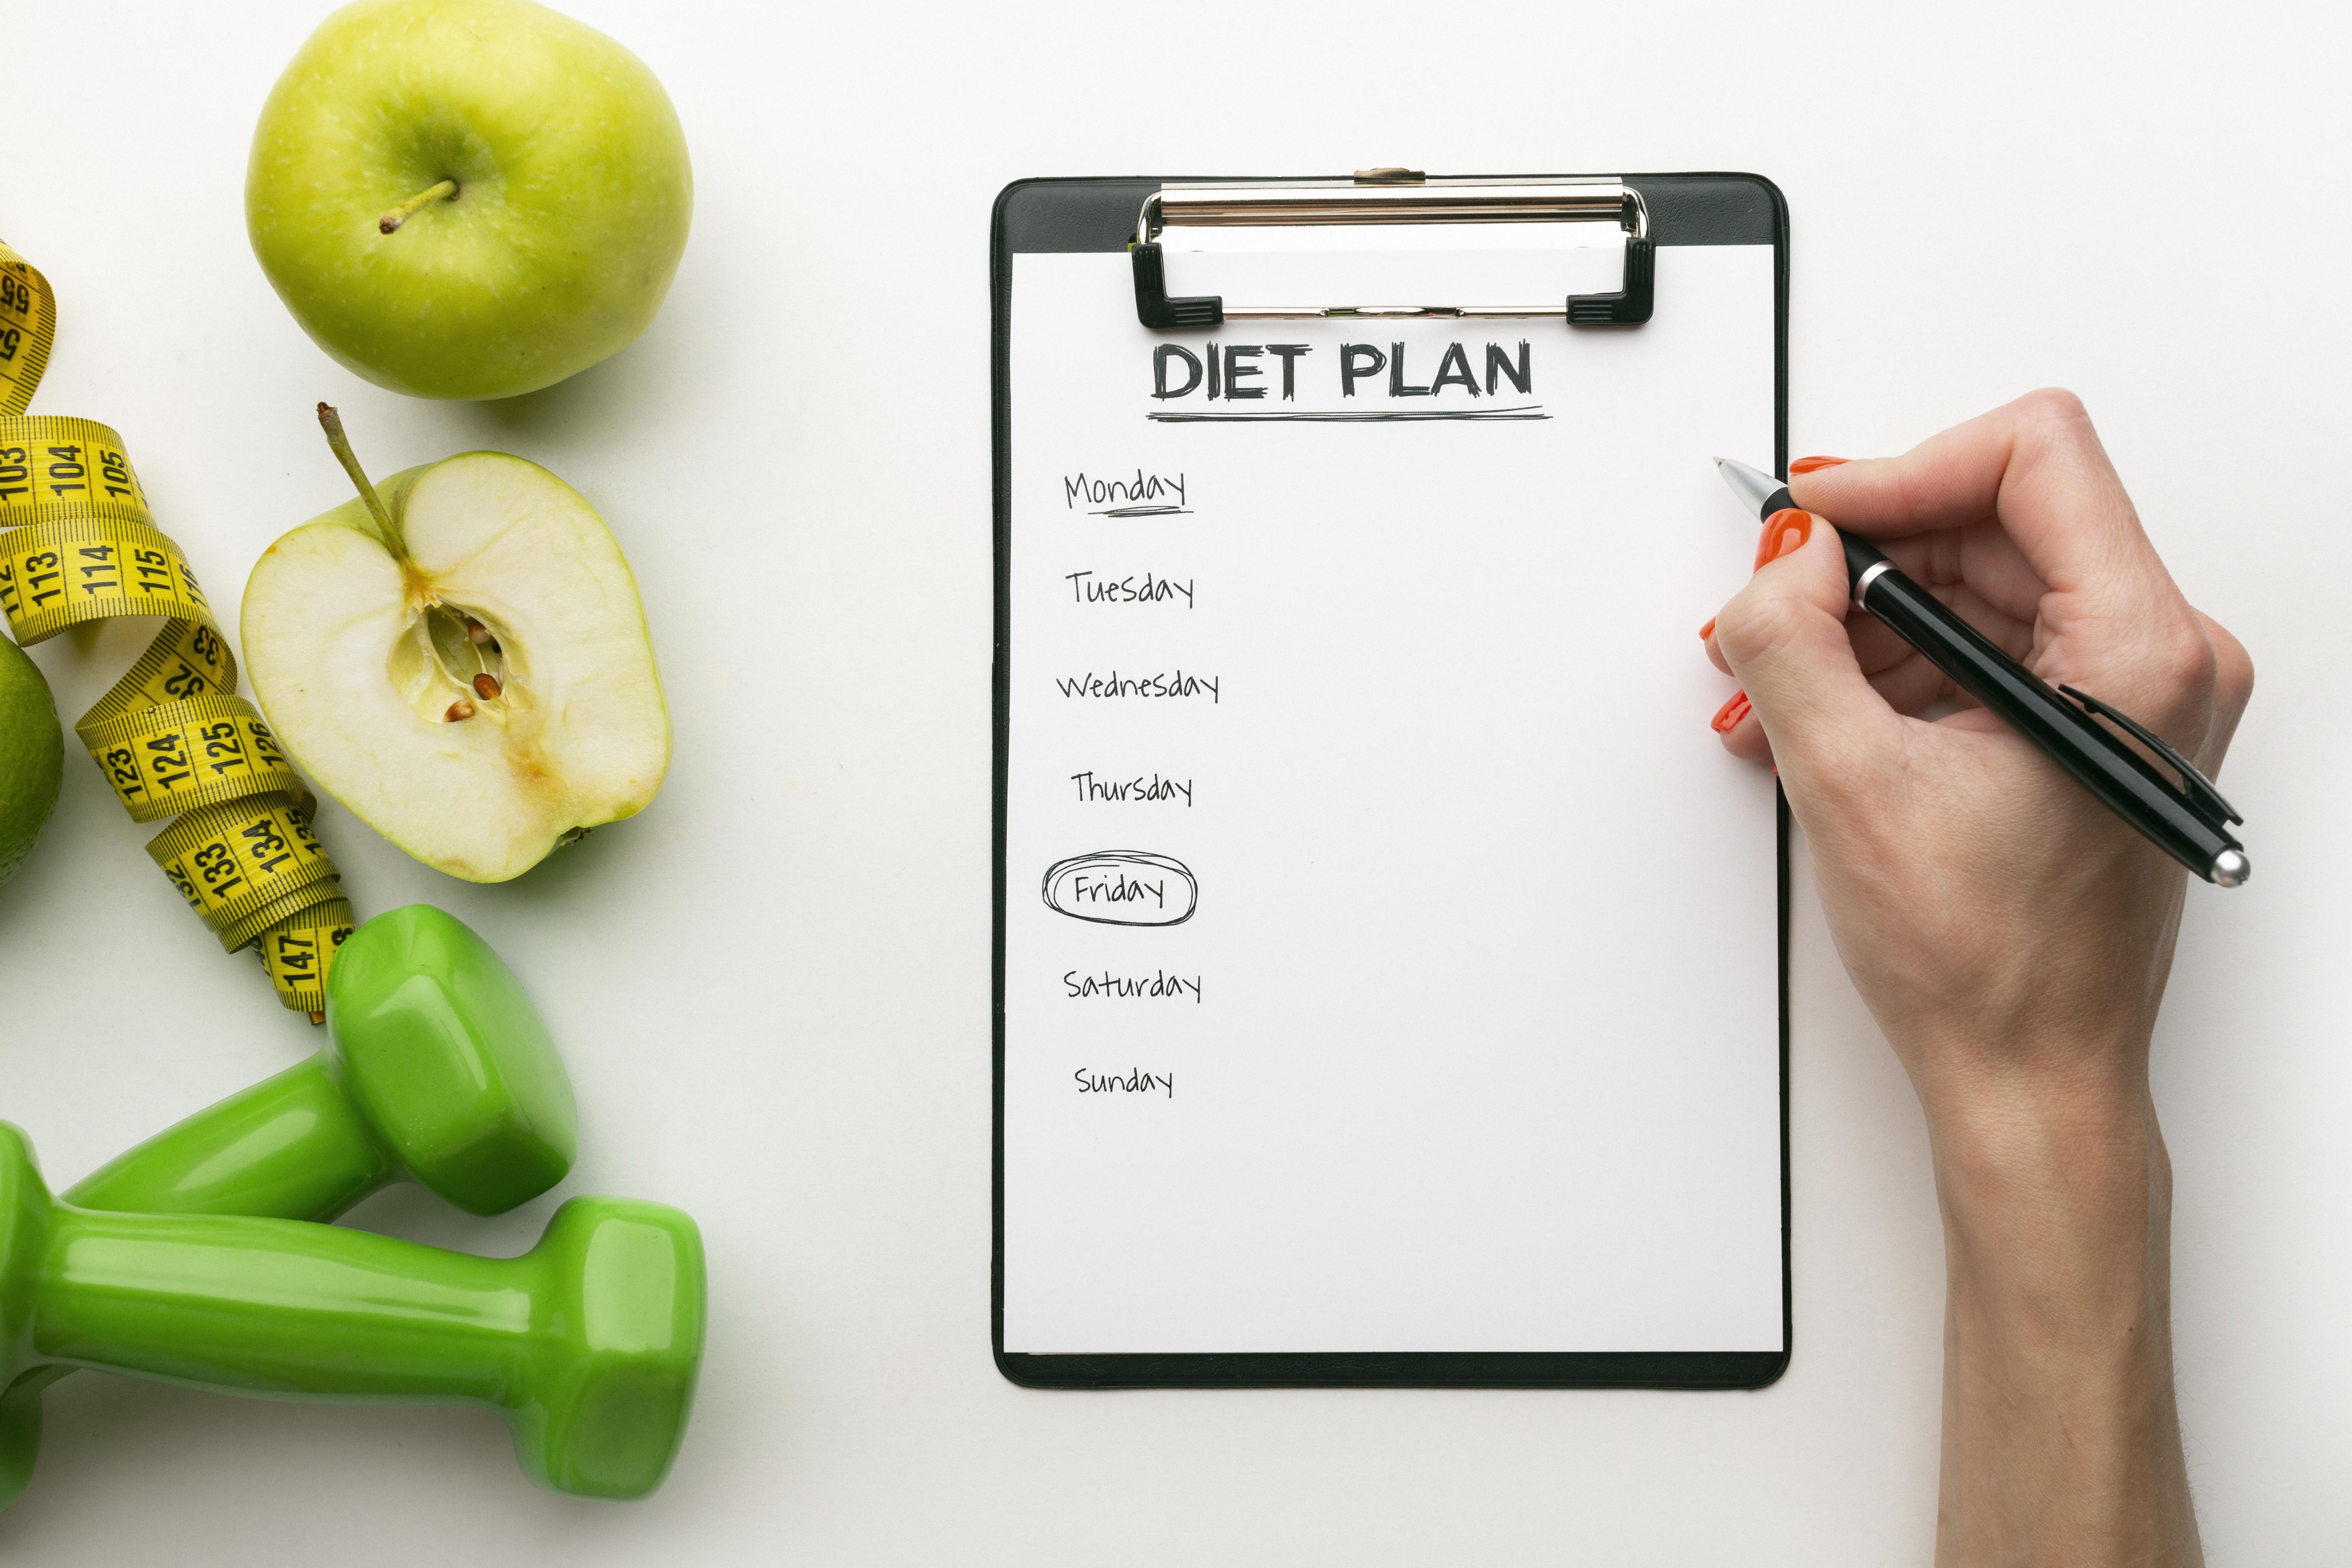 DIET PLAN
Monday
Tuesday
Wednesday
Thursday
Friday
Saturday
Sunday
55
103 104 105
113 114 115 116
32 33
123 124 125 126
132 133 134 135
147